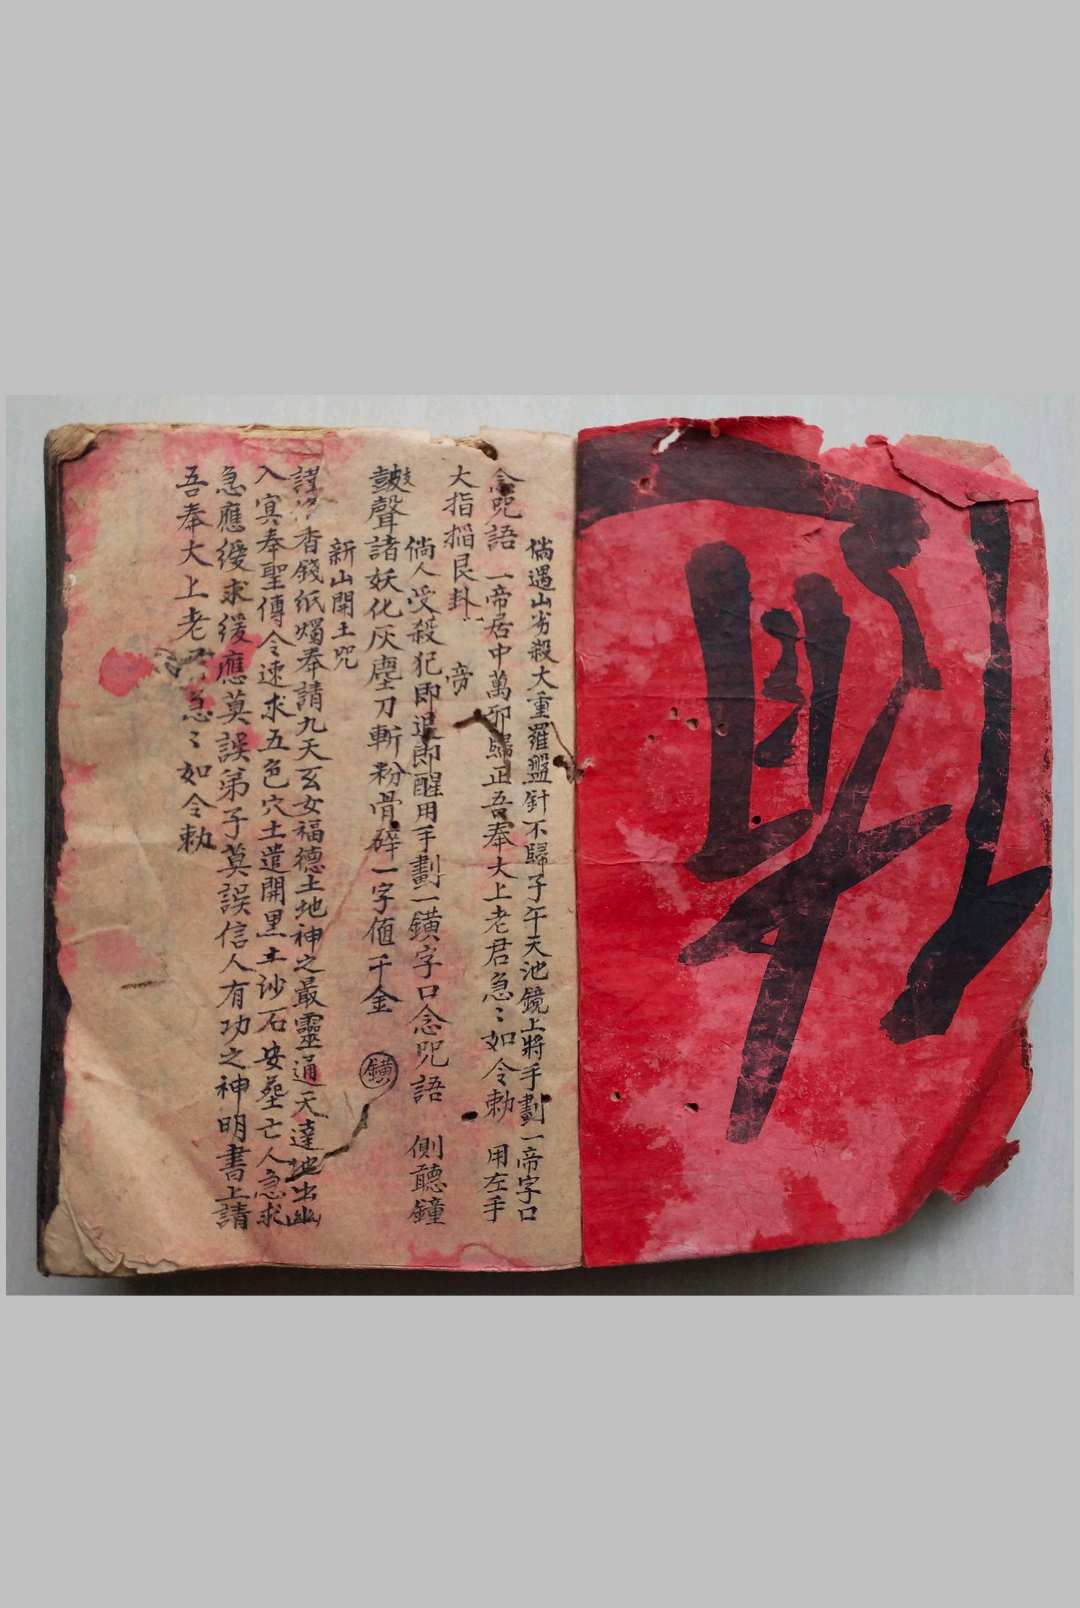 倘遇山岃殺大重羅盤針不歸子午天池鏡上將手劃一帝字口
念咒語 一帝居中萬邪歸正吾奉大上老君急〻如令勅 用左手
大指掐艮卦 帝
倘人受殺犯即退即醒用手劃一鐄字口念咒語 側聽鐘
鼓聲諸妖化灰塵刀斬粉骨碎一字值千金 鐄
新山開土咒
謹 香錢紙燭奉請九天玄女福德土地神之最靈通天達地出幽
入冥奉聖傳令速求五色穴土遣開黑土沙石安葬亡人急求
急應緩求緩應莫誤弟子莫誤信人有功之神明書上請
吾奉大上老君急〻如令勅